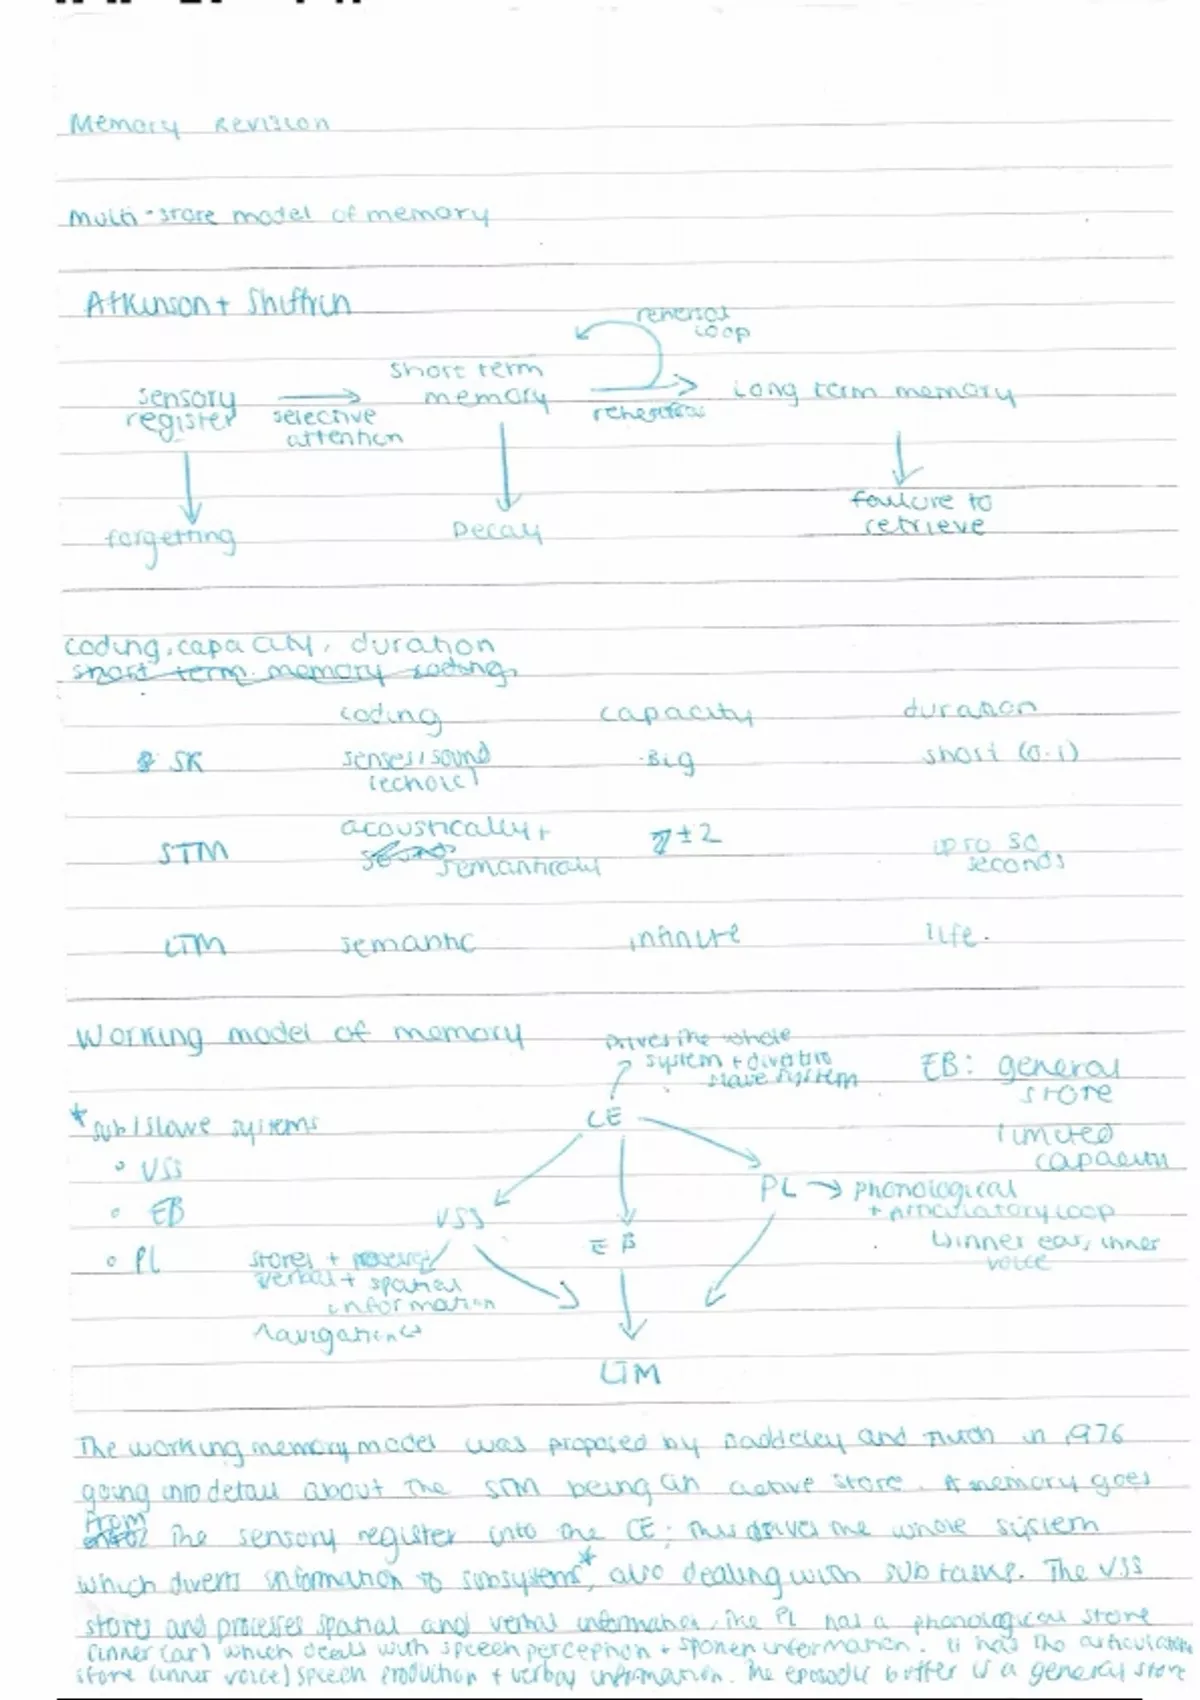 Memory Revision
Multi-store model of memory
Atkinson + Shiffrin
rehersal
loop
short term
memory
sensory
register
selective
attention
rehersal
long term memory
forgetting
Decay
failure to
retrieve
coding, capacity, duration
short term memory coding,
coding capacity duration
SR senses/sound big short (0.1)
(echoic)
STM acoustically + 7±2 up to 30
semantically seconds
LTM semantic infinite life.
Working model of memory
Drives the whole
system +
slave system
EB: general
store
limited
capacity
*sub/slave systems
CE
° VSS
° EB
° PL
VSS
EB
PL → phonological
+ Articulatory loop
inner ear, inner
voice
stores +
verbal + spatial
information
navigation
LTM
The working memory model was proposed by Baddeley and Hitch in 1976
going into detail about the STM being an active store. A memory goes
from the sensory register into the CE; this drives the whole system
which diverts information to subsystems*, also dealing with sub tasks. The VSS
stores and processes spatial and verbal information, the PL has a phonological store
(inner ear) which deals with speech perception + spoken information. It has the articulatory
store (inner voice) speech production + verbay information. The eposodic buffer is a general store